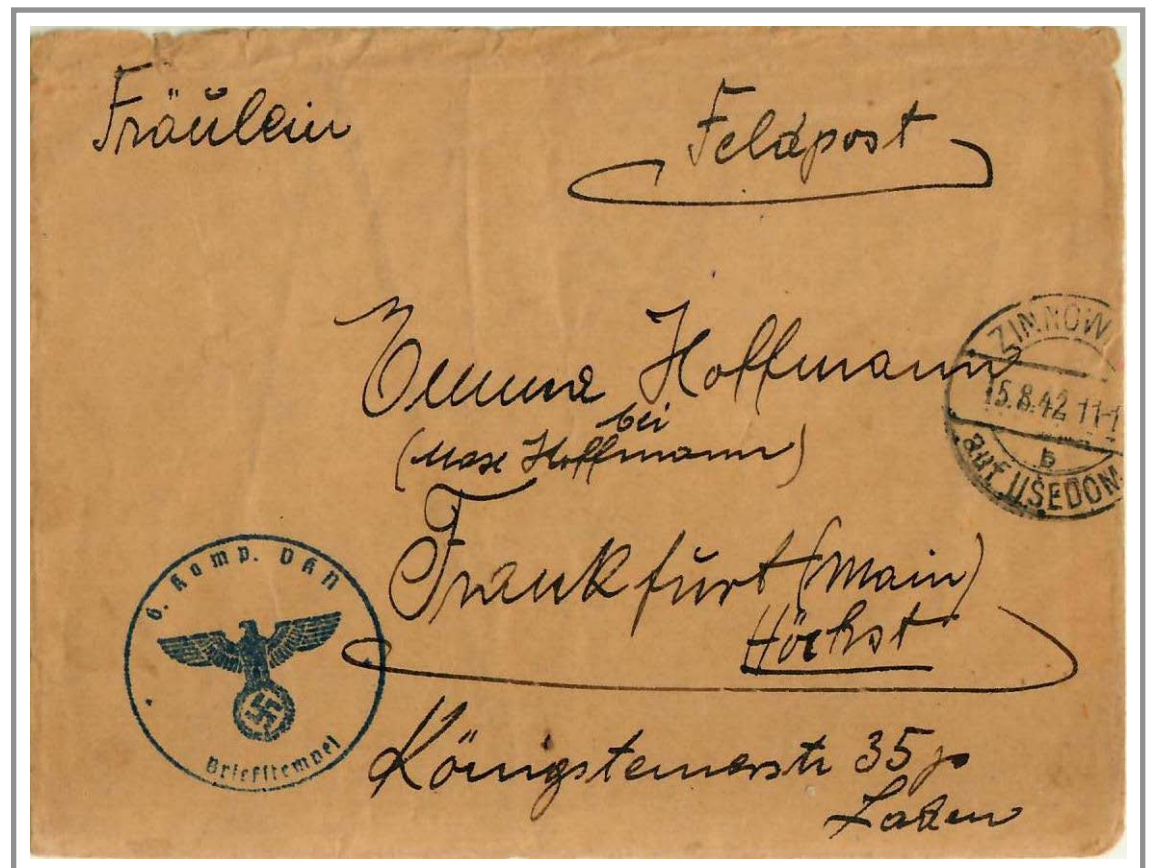 Fräulein
Feldpost
Emma Hoffmann
bei
(Max Hoffmann)
Frankfurt (Main)
Höchst
Königsteinerstr 35
Laden
ZINNOW
15.8.42 11-1
b
auf USEDOM
6. Komp. VKN
Briefstempel